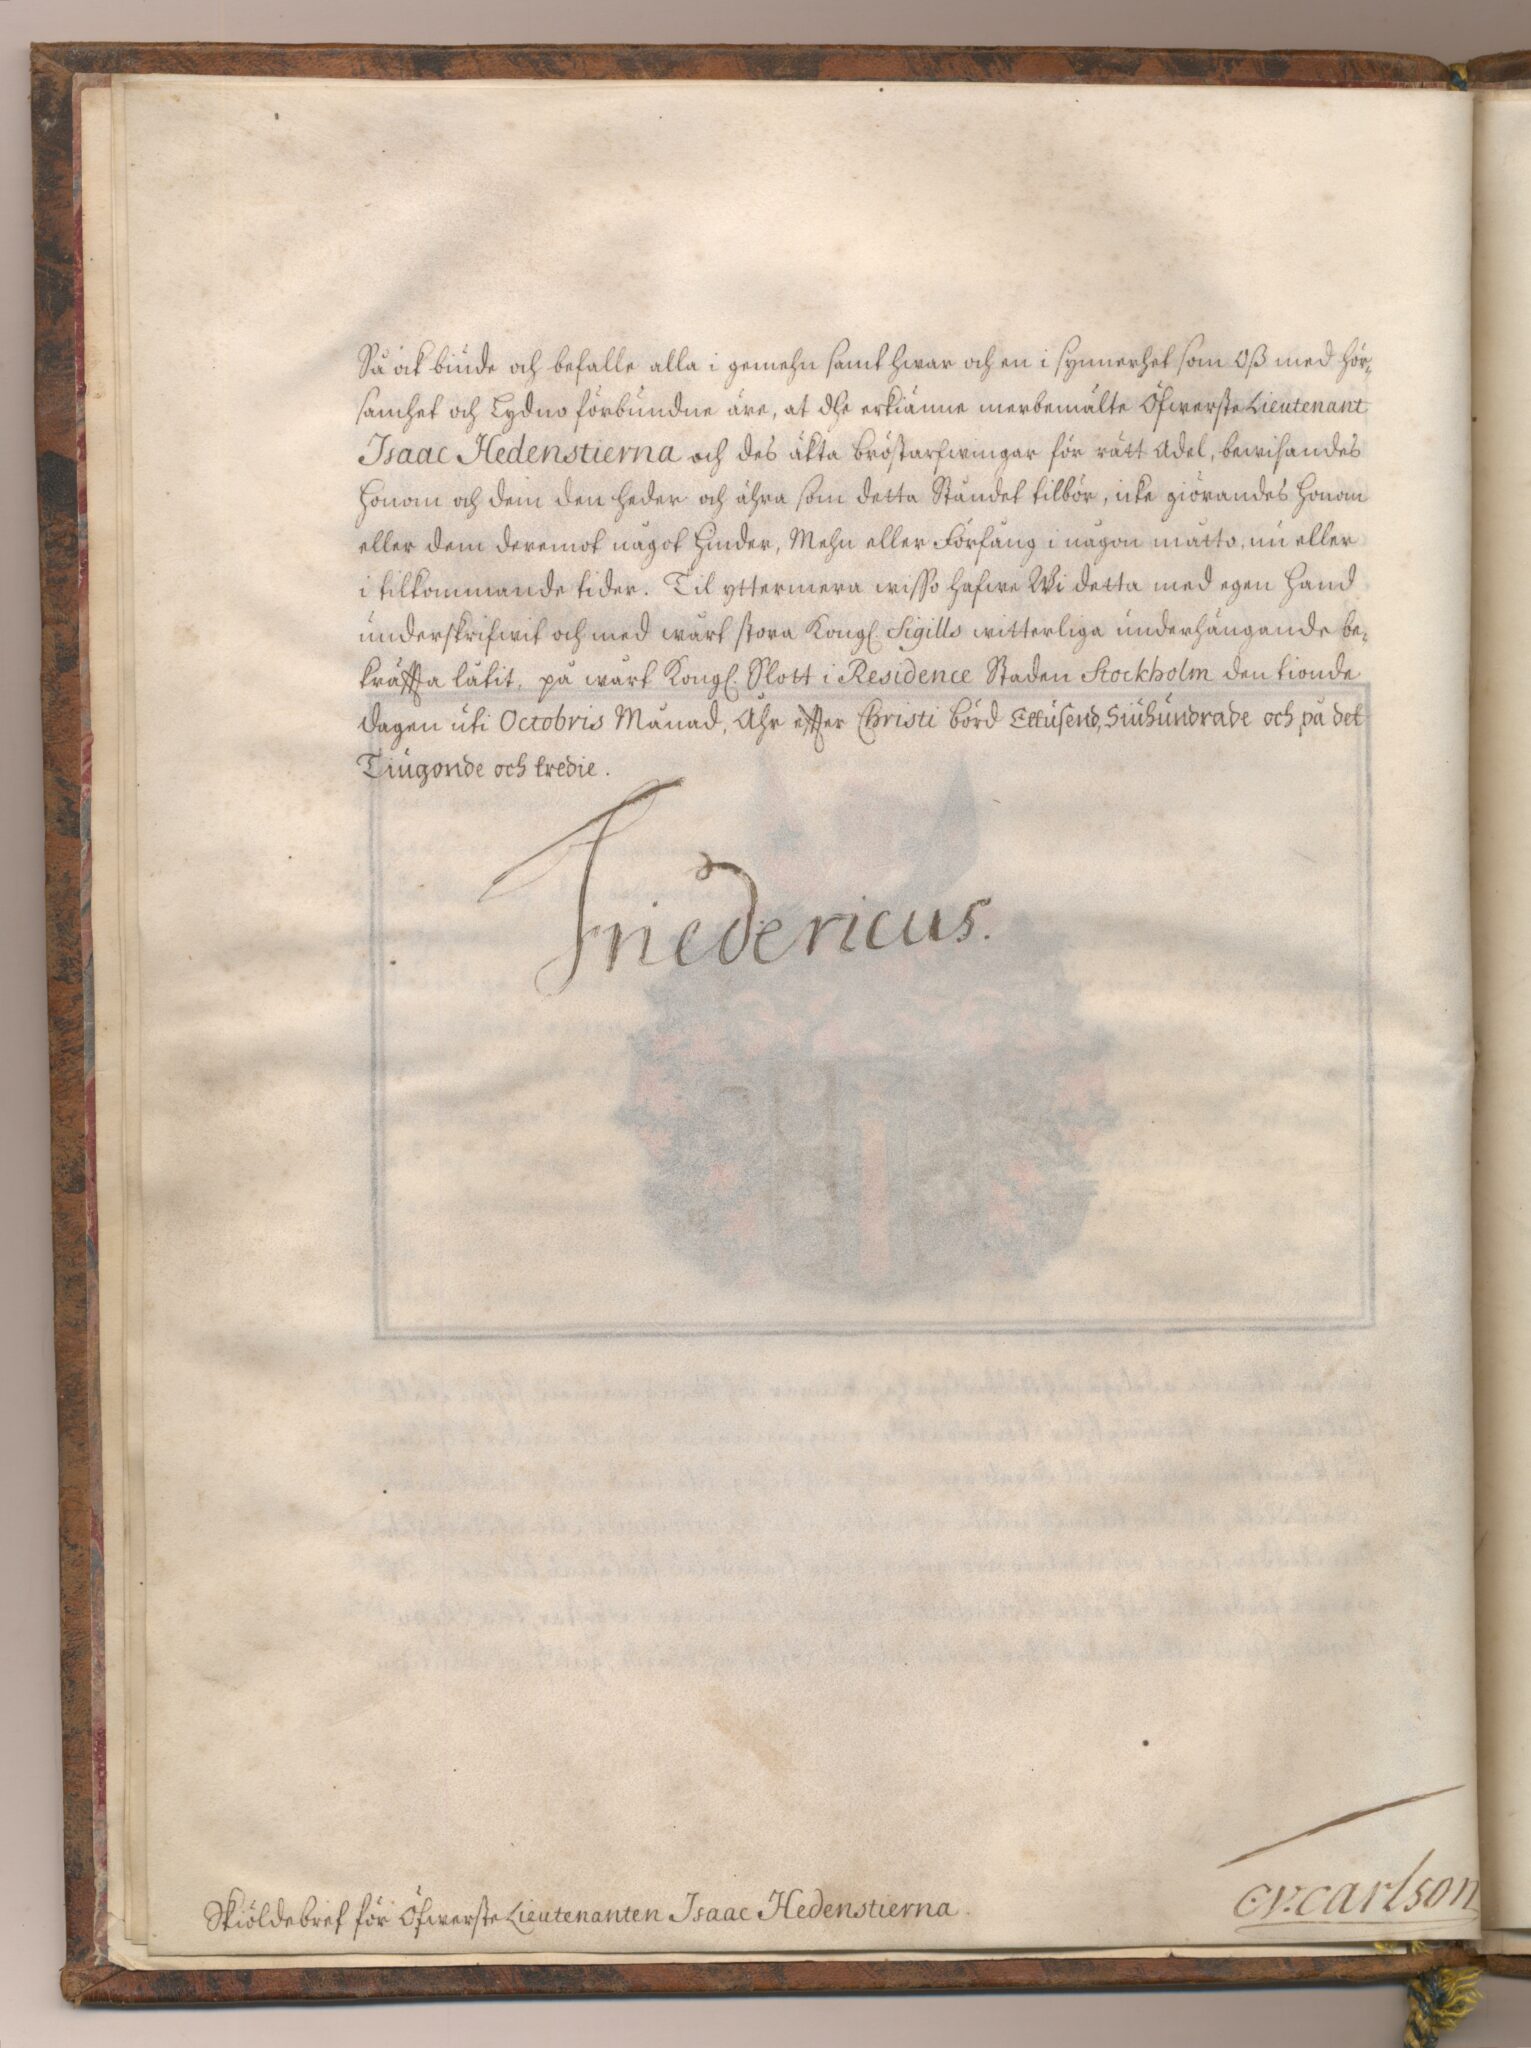 Så ock biude och befalle alla i gemehn samt hwar och en i synnerhet som Oß med hör-
samhet och Lydno förbundne äre, at dhe erkiänne merbemälte Öfwerste Lieutenant
Isaac Hedenstierna och des äkta bröstarfwingar för rätt Adel, bewisandes
honom och dem den heder och ähra som detta Ståndet tilbör, icke giörandes honom
eller dem deremot något hinder, Mehn eller Förfång i någon måtto, nu eller
i tilkommande tider. Til yttermera wisso hafwe Wi detta med egen hand
underskrifwit och med wårt stora Kongl. Sigills witterliga underhängande be-
kräffta låtit, på wårt Kongl. Slott i Residence Staden Stockholm den tionde
dagen uti Octobris Månad, Åhr effter Christi börd Ettusend, Siuhundrade och på det
Tiugonde och tredie.
Friedericus.
Skiöldebref för Öfwerste Lieutenanten Isaac Hedenstierna.
C.V:Carlson